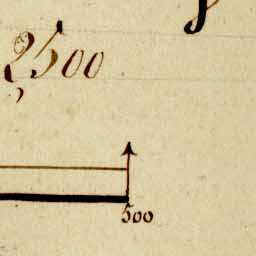 2500
500